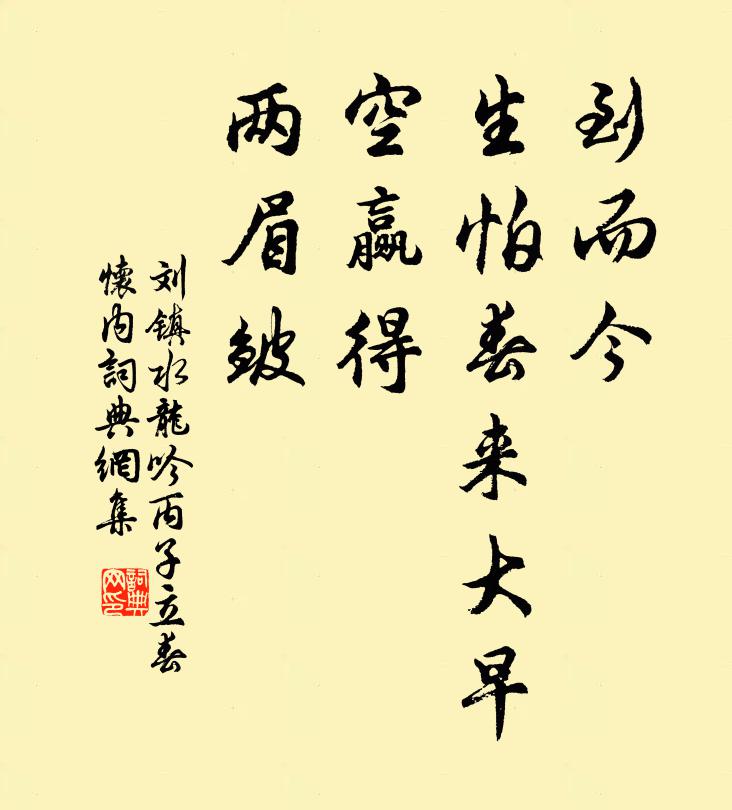 到而今
生怕春来大早
空赢得
两眉皱
刘镇水龍吟丙子立春
懷内詞典網集
詞典
网印